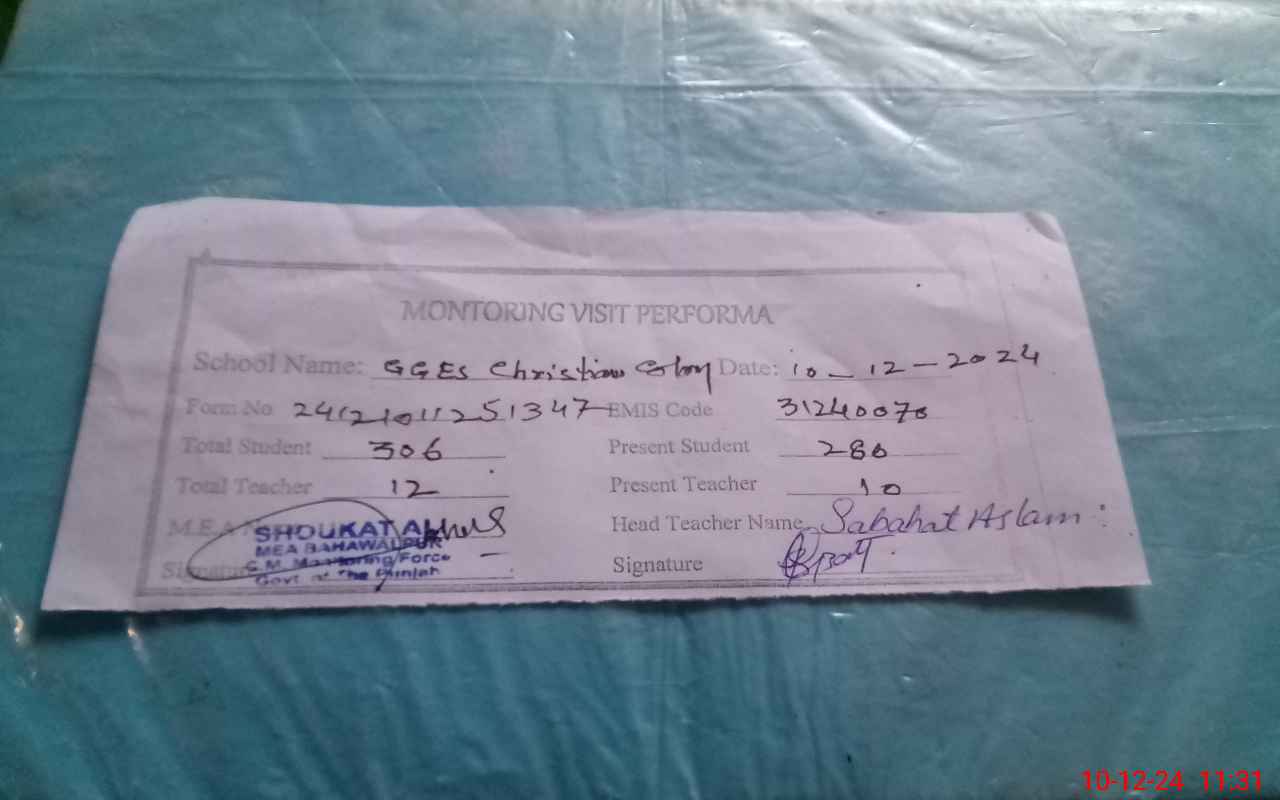 MONTORING VISIT PERFORMA
School Name: GGES Christian Colony Date: 10-12-2024
Form No 24121011251347 EMIS Code 31240070
Total Student 306 Present Student 280
Total Teacher 12 Present Teacher 10
M.E.A Head Teacher Name Sabahat Aslam
SHOUKAT ALI
MEA BAHAWALPUR
C.M. Monitoring Force
Govt of The Punjab
Signature Signature
10-12-24 11:31